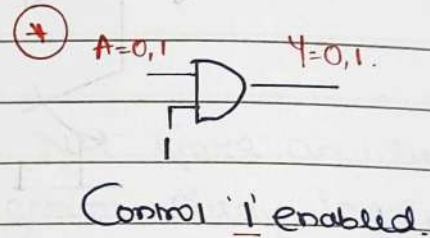 *
A=0,1 Y=0,1.
1
Control '1' enabled.